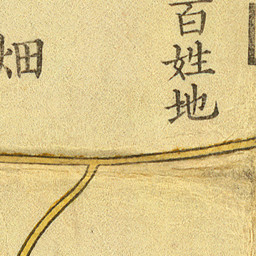 百姓地
畑